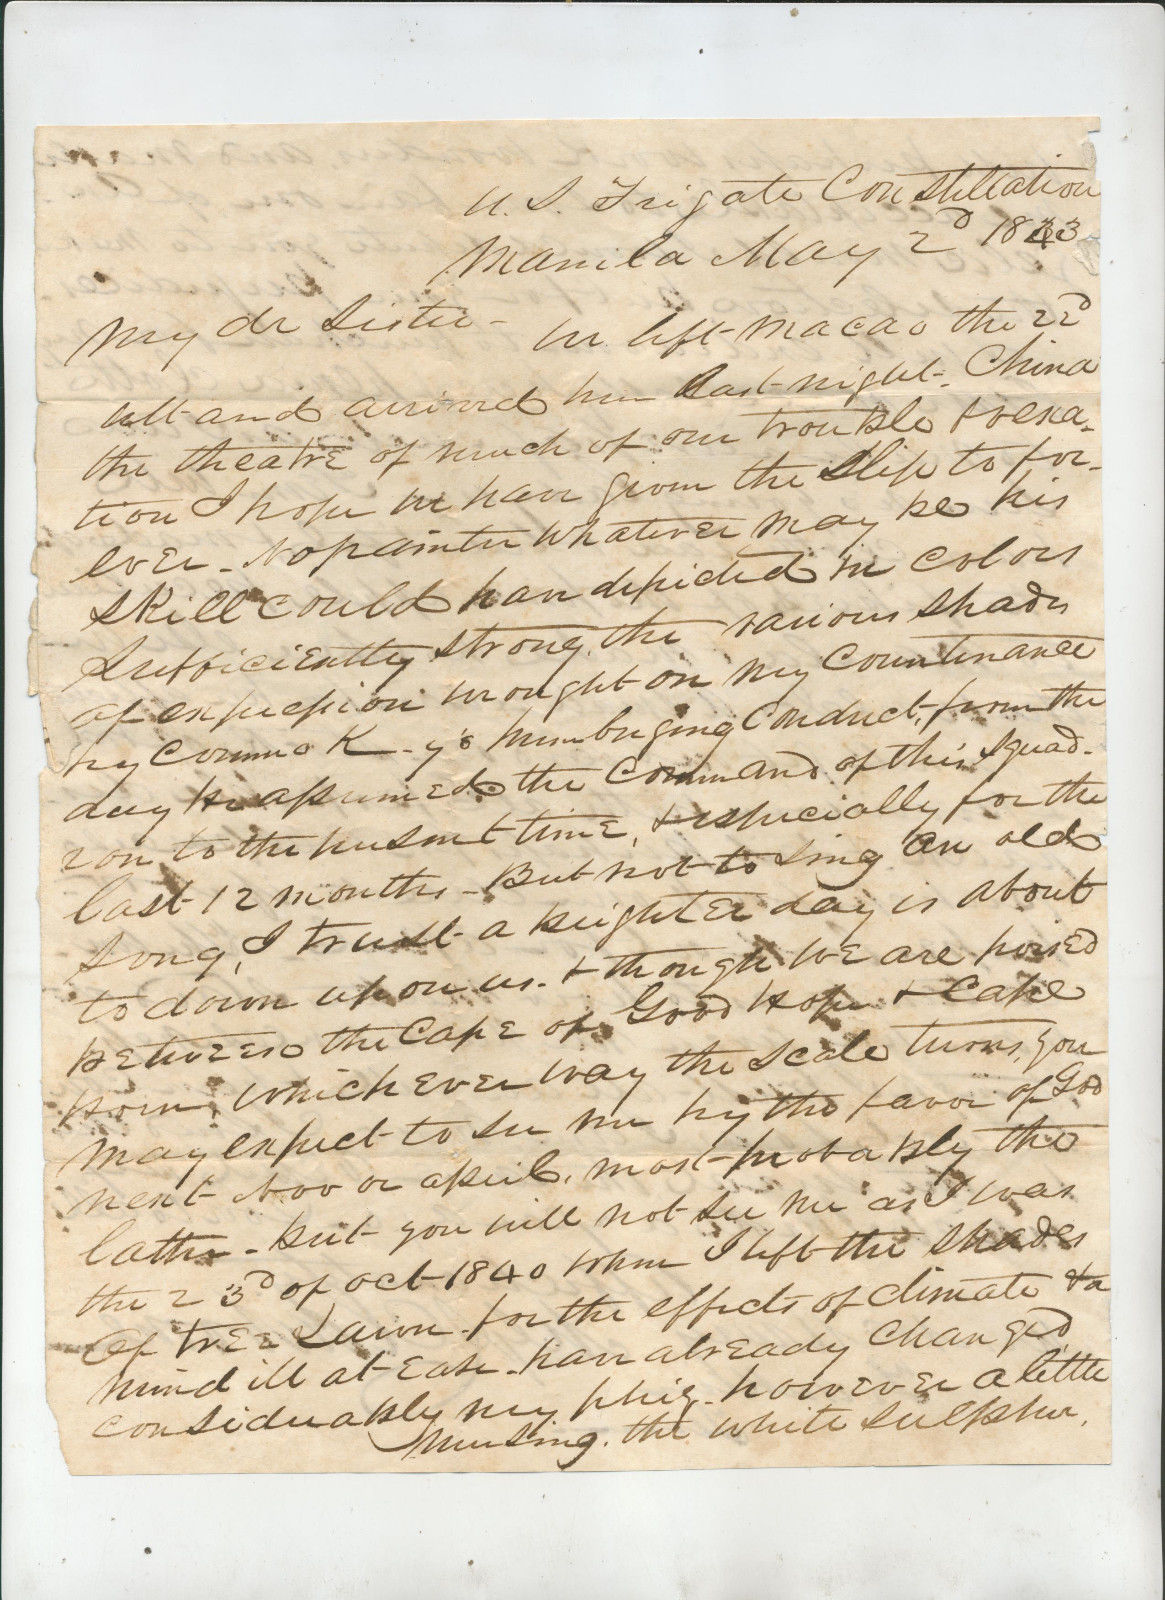 U. S. Frigate Constellation
Manila May 2d 1843
My dr Sister - We left Macao the 22d
ult and arrived here last night. China
the theatre of much of our trouble & vexa-
tion I hope we have given the slip to for-
ever - No painter whatever may be his
skill could have depicted in colors
sufficiently strong the various shades
of expression wrought on my countenance
by Commo K-y's humbuging conduct, from the
day he assumed the command of this squad-
ron to the present time, & especially for the
last 12 months - But not to sing an old
song, I trust a brighter day is about
to dawn upon us. & though we are poised
between the Cape of Good Hope & Cape
Horn, which ever way the scale turns, you
may expect to see me by the favor of God
next Nov or april, most probably the
latter - But you will not see me as I was
the 23d of oct 1840 when I left the shades
of tree Lawn - for the effects of climate & a
mind ill at ease - have already changed
considerably my phiz - however a little
nursing. the white sulphur,